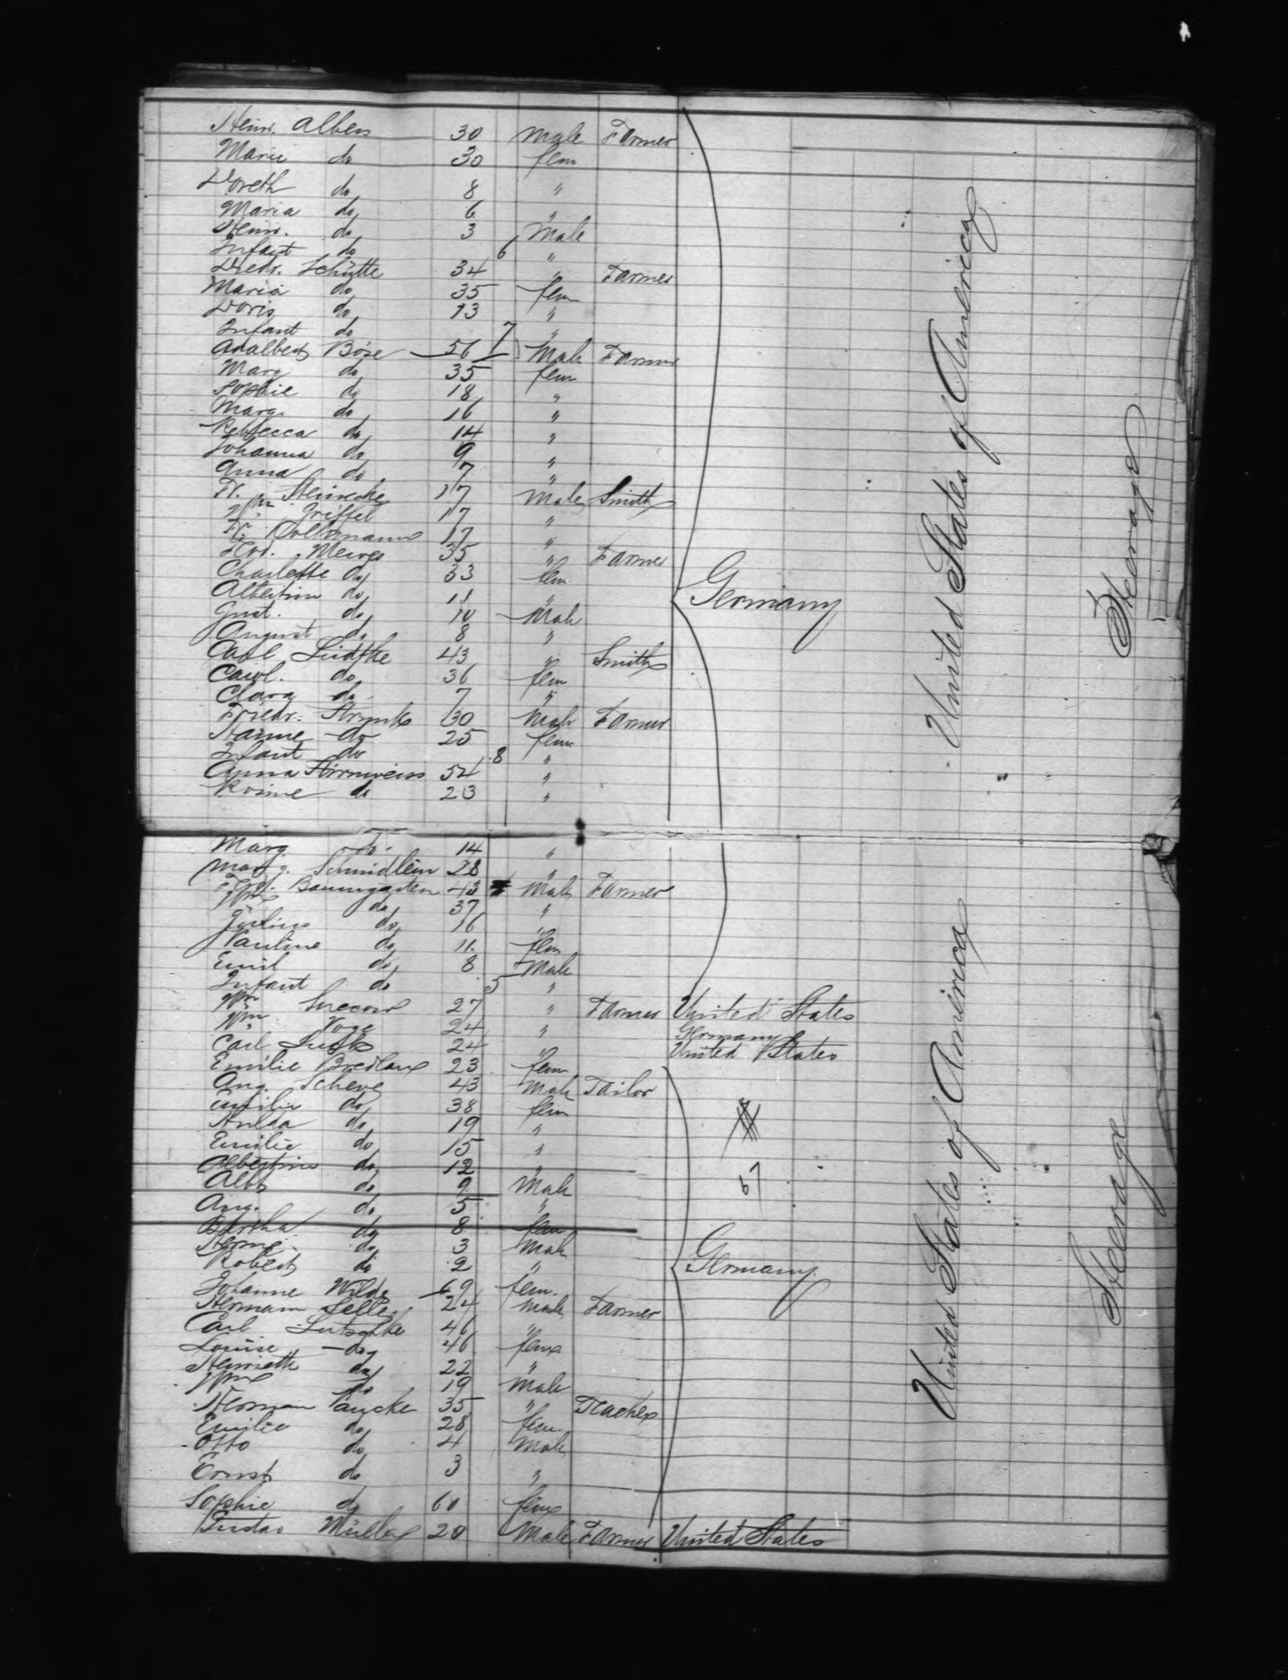 Heinr. Albers 30 Male Farmer
Marie do 30 fem
Doreth do 8 "
Maria do 6 "
Heinr. do 3 Male
Infant do 6 "
Diedr. Schütte 34 " Farmer
Maria do 35 fem
Doris do 13 "
Infant do 7 "
Adalbert Böse 56 Male Farmer
Marg do 35 fem
Sophie do 18 "
Marg. do 16 "
Rebecca do 14 "
Johanna do 9 "
Anna do 7 "
H. Steinecke 17 Male Smith
Wm Griffel 17 "
Fr. 17 "
Ferd. Mewes 35 " Farmer
Charlotte do 33 fem
Albertine do 11 "
Gust. do 10 Male
August do 8 "
Carl Lüdtke 43 " Smith
Carol. do 36 fem
Clara do 7 "
Friedr. 30 Male Farmer
do 25 fem
Infant do 8 "
Anna 54 "
Rosine do 23 "
Germany
United States of America
Steerage
Marg do 14 "
Marg. Schmidlein 28 "
Ferd. Baumgarten 43 Male Farmer
Wme do 37 "
Julius do 16 "
Pauline do 11 fem
Emil do 8 Male
Infant do 5 "
Wm 27 " Farmer United States
Wm Voss 24 " Germany
Carl 24 " United States
Emilie 23 fem
Aug. Scheve 43 Male Tailor
Emilie do 38 fem
Hulda do 19 "
Emilie do 15 "
Albertine do 12 "
Alb do 9 Male
Aug. do 5 "
Bertha do 8 fem
Herm. do 3 Male
Robert do 2 "
Johanne Wilde 69 fem.
Hermann Selle 24 Male Farmer
Carl 46 "
Louise do 46 fem
Henriette do 22 "
Wm do 19 Male
Herman Paucke 35 " Teacher
Emilie do 28 fem
Otto do 4 Male
Ernst do 3 "
Sophie do 60 fem
Gustav Müller 20 Male Farmer United States
67
Germany
United States of America
Steerage